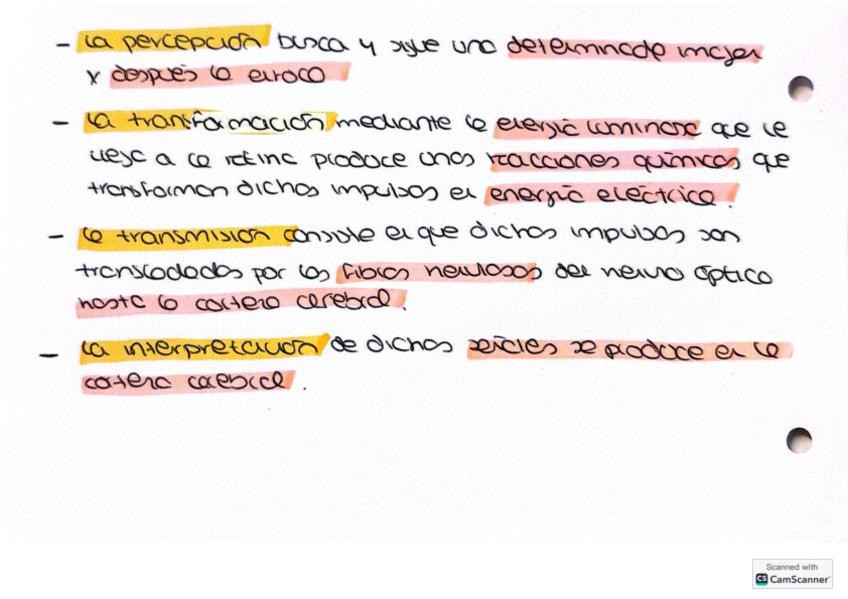 - La percepción busca y sigue una determinada imagen
y después la enfoca
- La transformación mediante la energía luminosa que le
llega a la retina produce unas reacciones químicas que
transforman dichos impulsos en energía eléctrica.
- La transmisión consiste en que dichos impulsos son
transladados por las fibras nerviosas del nervio óptico
hasta la corteza cerebral.
- La interpretación de dichas señales se produce en la
corteza cerebral.
Scanned with
CS CamScanner